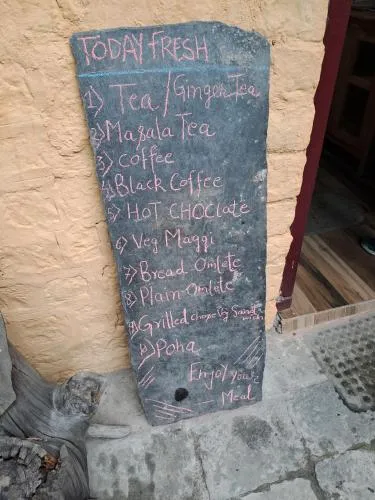 TODAY FRESH
1) Tea / Ginger Tea
2) Masala Tea
3) Coffee
4) Black Coffee
5) HOT CHOCLATE
6) Veg Maggi
7) Bread Omlete
8) Plain Omlete
9) Grilled Veg Sandwich
10) Poha
Enjoy your
Meal